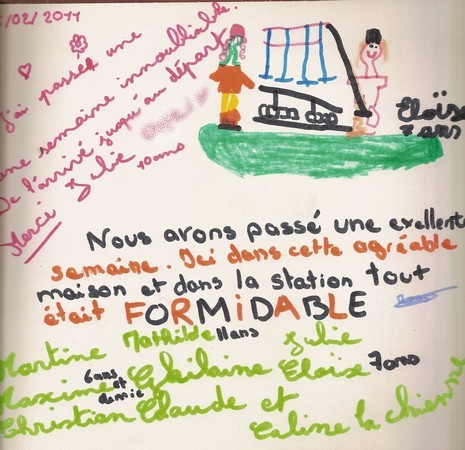 /02/2011
J'ai passée une
une semaine innoubliable.
De l'arrivé jusqu'au départ
Merci Julie
10ans
Eloïse
7 ans
Nous avons passé une excellente
semaine. Ici dans cette agréable
maison et dans la station tout
était FORMIDABLE
Martine Mathilde 11ans Julie
Maxime 6ans et demie Ghilaine Eloïse 7ans
Christian Claude et
Caline la chienne